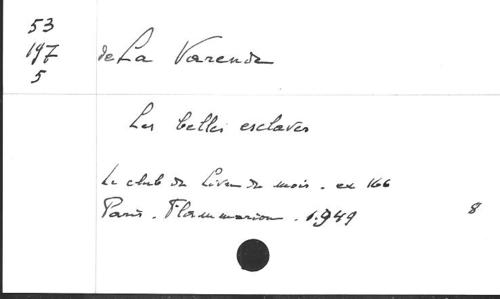 53
197
5
de La Varende
Les belles esclaves
Le club du Livre du mois. ex 166
Paris. Flammarion. 1949
8